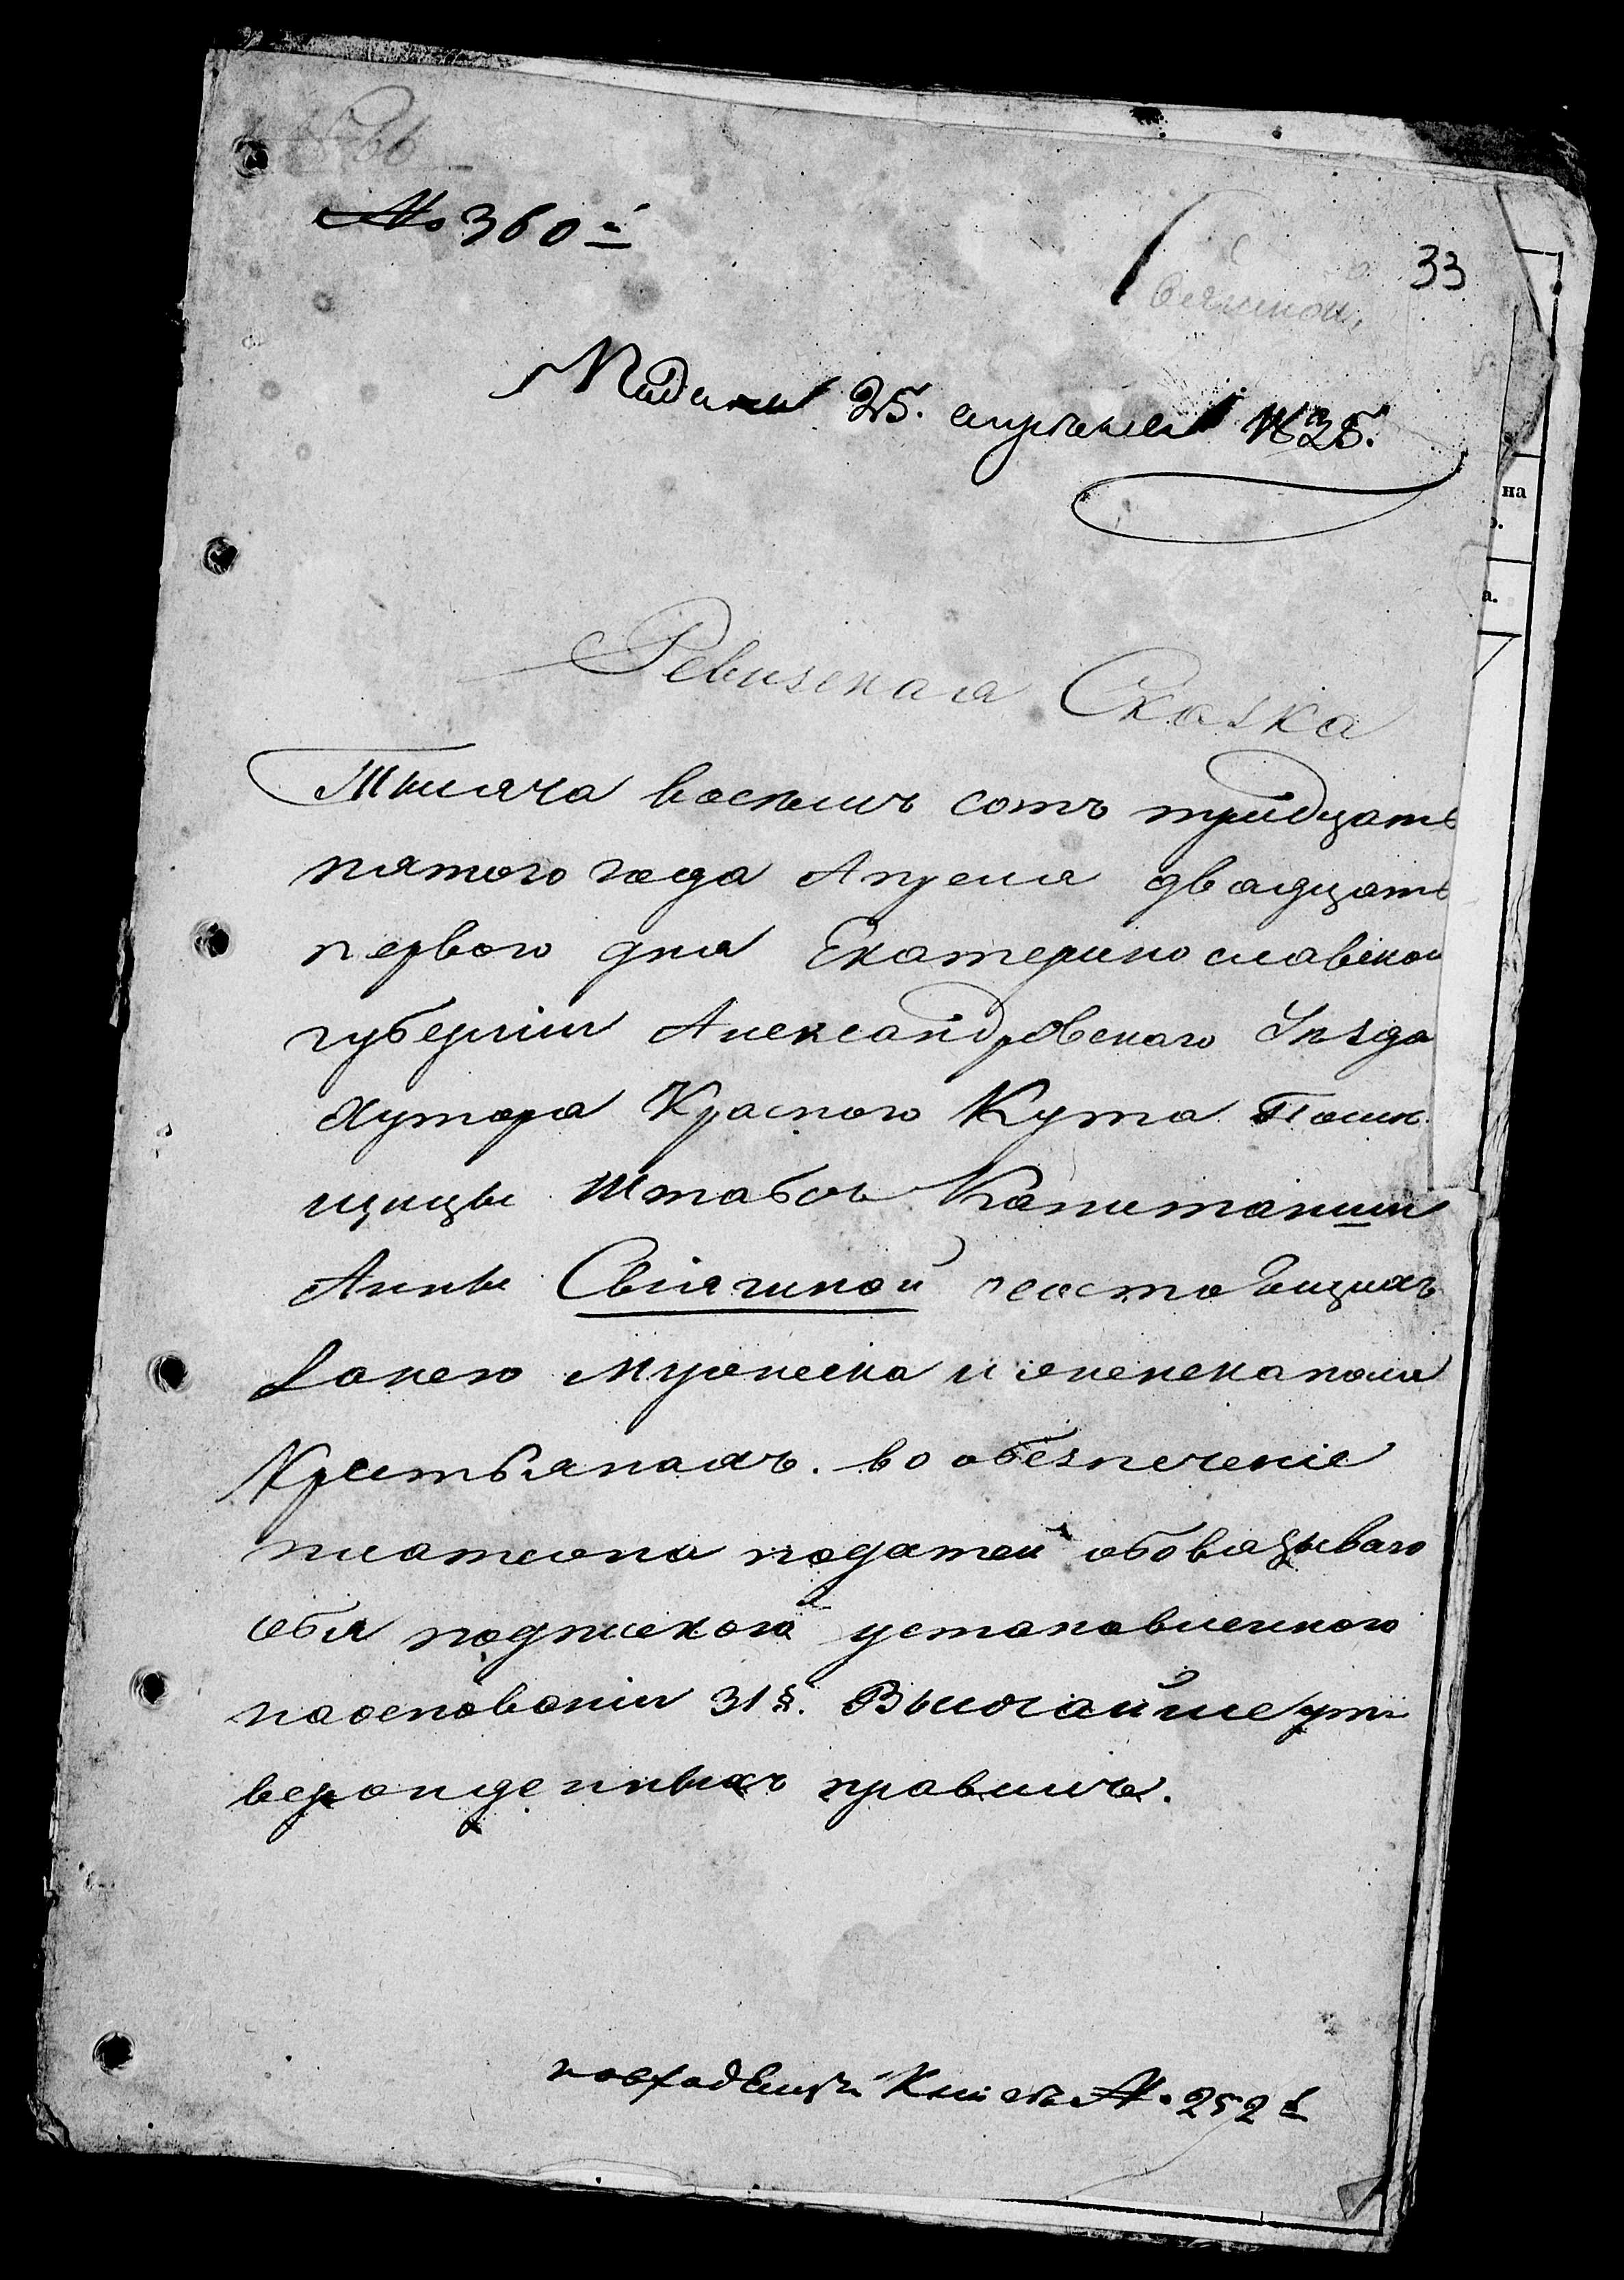 № 360й
33
Подана 25. апреля 1835.
Ревизская Сказка
Тысяча восемь сотъ тридцать
пятого года Апреля двадцать
первого дня Екатеринославской
губернии Александровского Уезда
Хутора Красного Кута Помѣ
щицы Штабсъ Капитанши
Анны Свиягиной о состоящихъ
мужеска и женска пола
Крестьянахъ. во обезпечение
платежа податей обовязываю
себя подпискою установленною
наосновании 31 §. Высочайше ут
вержденныхъ правилъ.
повходящей Книгѣ № 252й
на